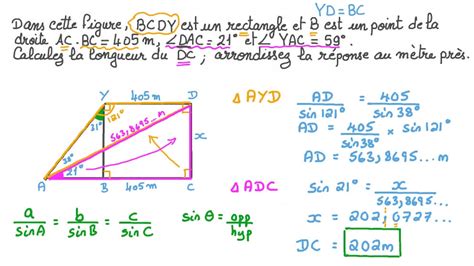 YD = BC
Dans cette figure, BCDY est un rectangle et B est un point de la
droite AC. BC = 405 m, ∠DAC = 21° et ∠YAC = 59°.
Calculez la longueur du DC ; arrondissez la réponse au mètre près.
Y 405m D
21° 121°
563,8695...m
x
38°
21°
A B 405m C
a/sin A = b/sin B = c/sin C
sin θ = opp/hyp
△ AYD AD/sin 121° = 405/sin 38°
AD = 405/sin 38° × sin 121°
AD = 563,8695...m
△ ADC sin 21° = x/563,8695...m
x = 202,0727...
DC = 202m